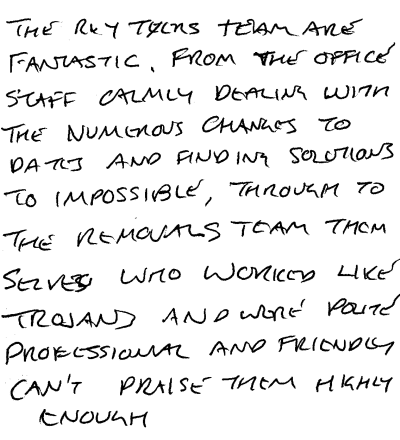 THE TEAM ARE
FANTASTIC. FROM THE OFFICE
STAFF CALMLY DEALING WITH
THE NUMEROUS CHANGES TO
DATES AND FINDING SOLUTIONS
TO IMPOSSIBLE, THROUGH TO
THE REMOVALS TEAM THEM
SELVES WHO WORKED LIKE
TROJANS AND WERE POLITE
PROFESSIONAL AND FRIENDLY
CAN'T PRAISE THEM HIGHLY
ENOUGH